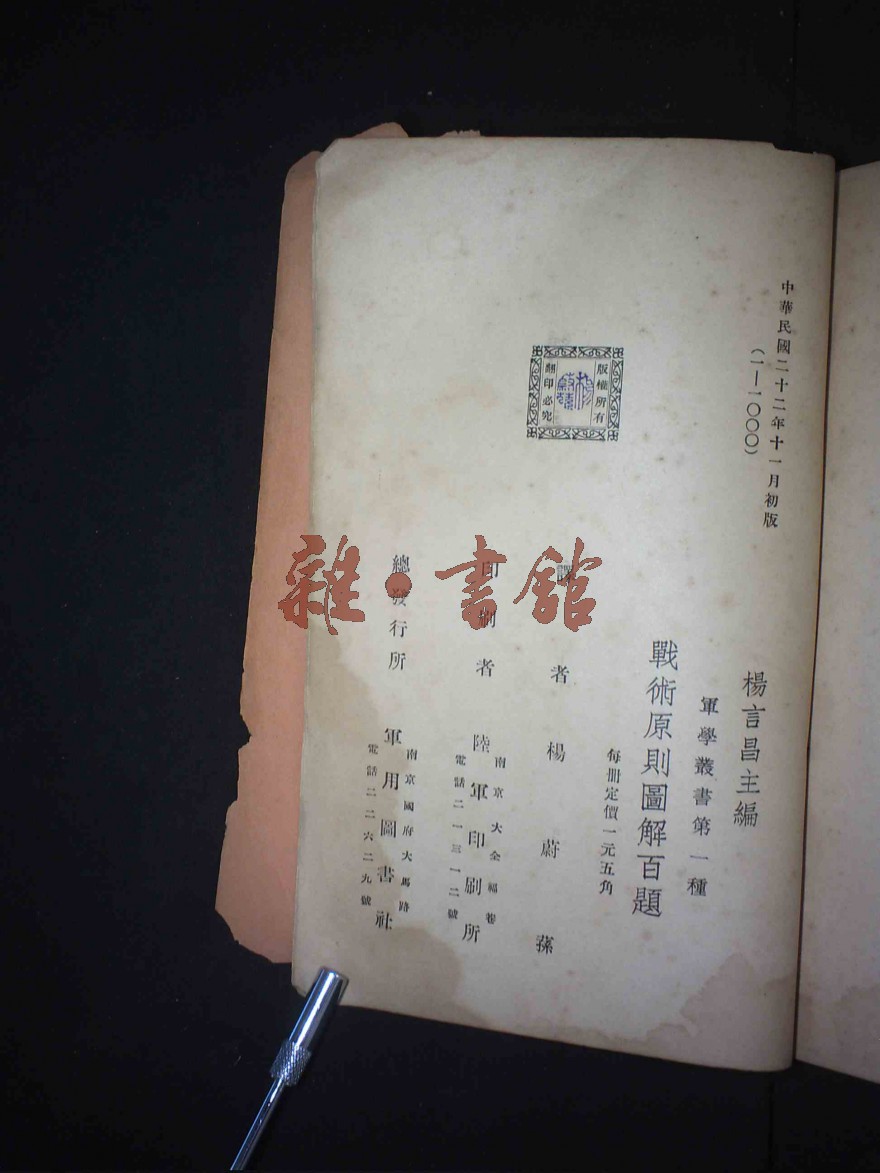 中華民國二十二年十一月初版
(一—一〇〇〇)
楊言昌主編
軍學叢書第一種
戰術原則圖解百題
每冊定價一元五角
版權所有
翻印必究
譯者楊蔚蓀
印刷者陸軍印刷所
南京大全福巷
電話二一三一二號
總發行所軍用圖書社
南京國府大馬路
電話二二六二九號
雜·書館